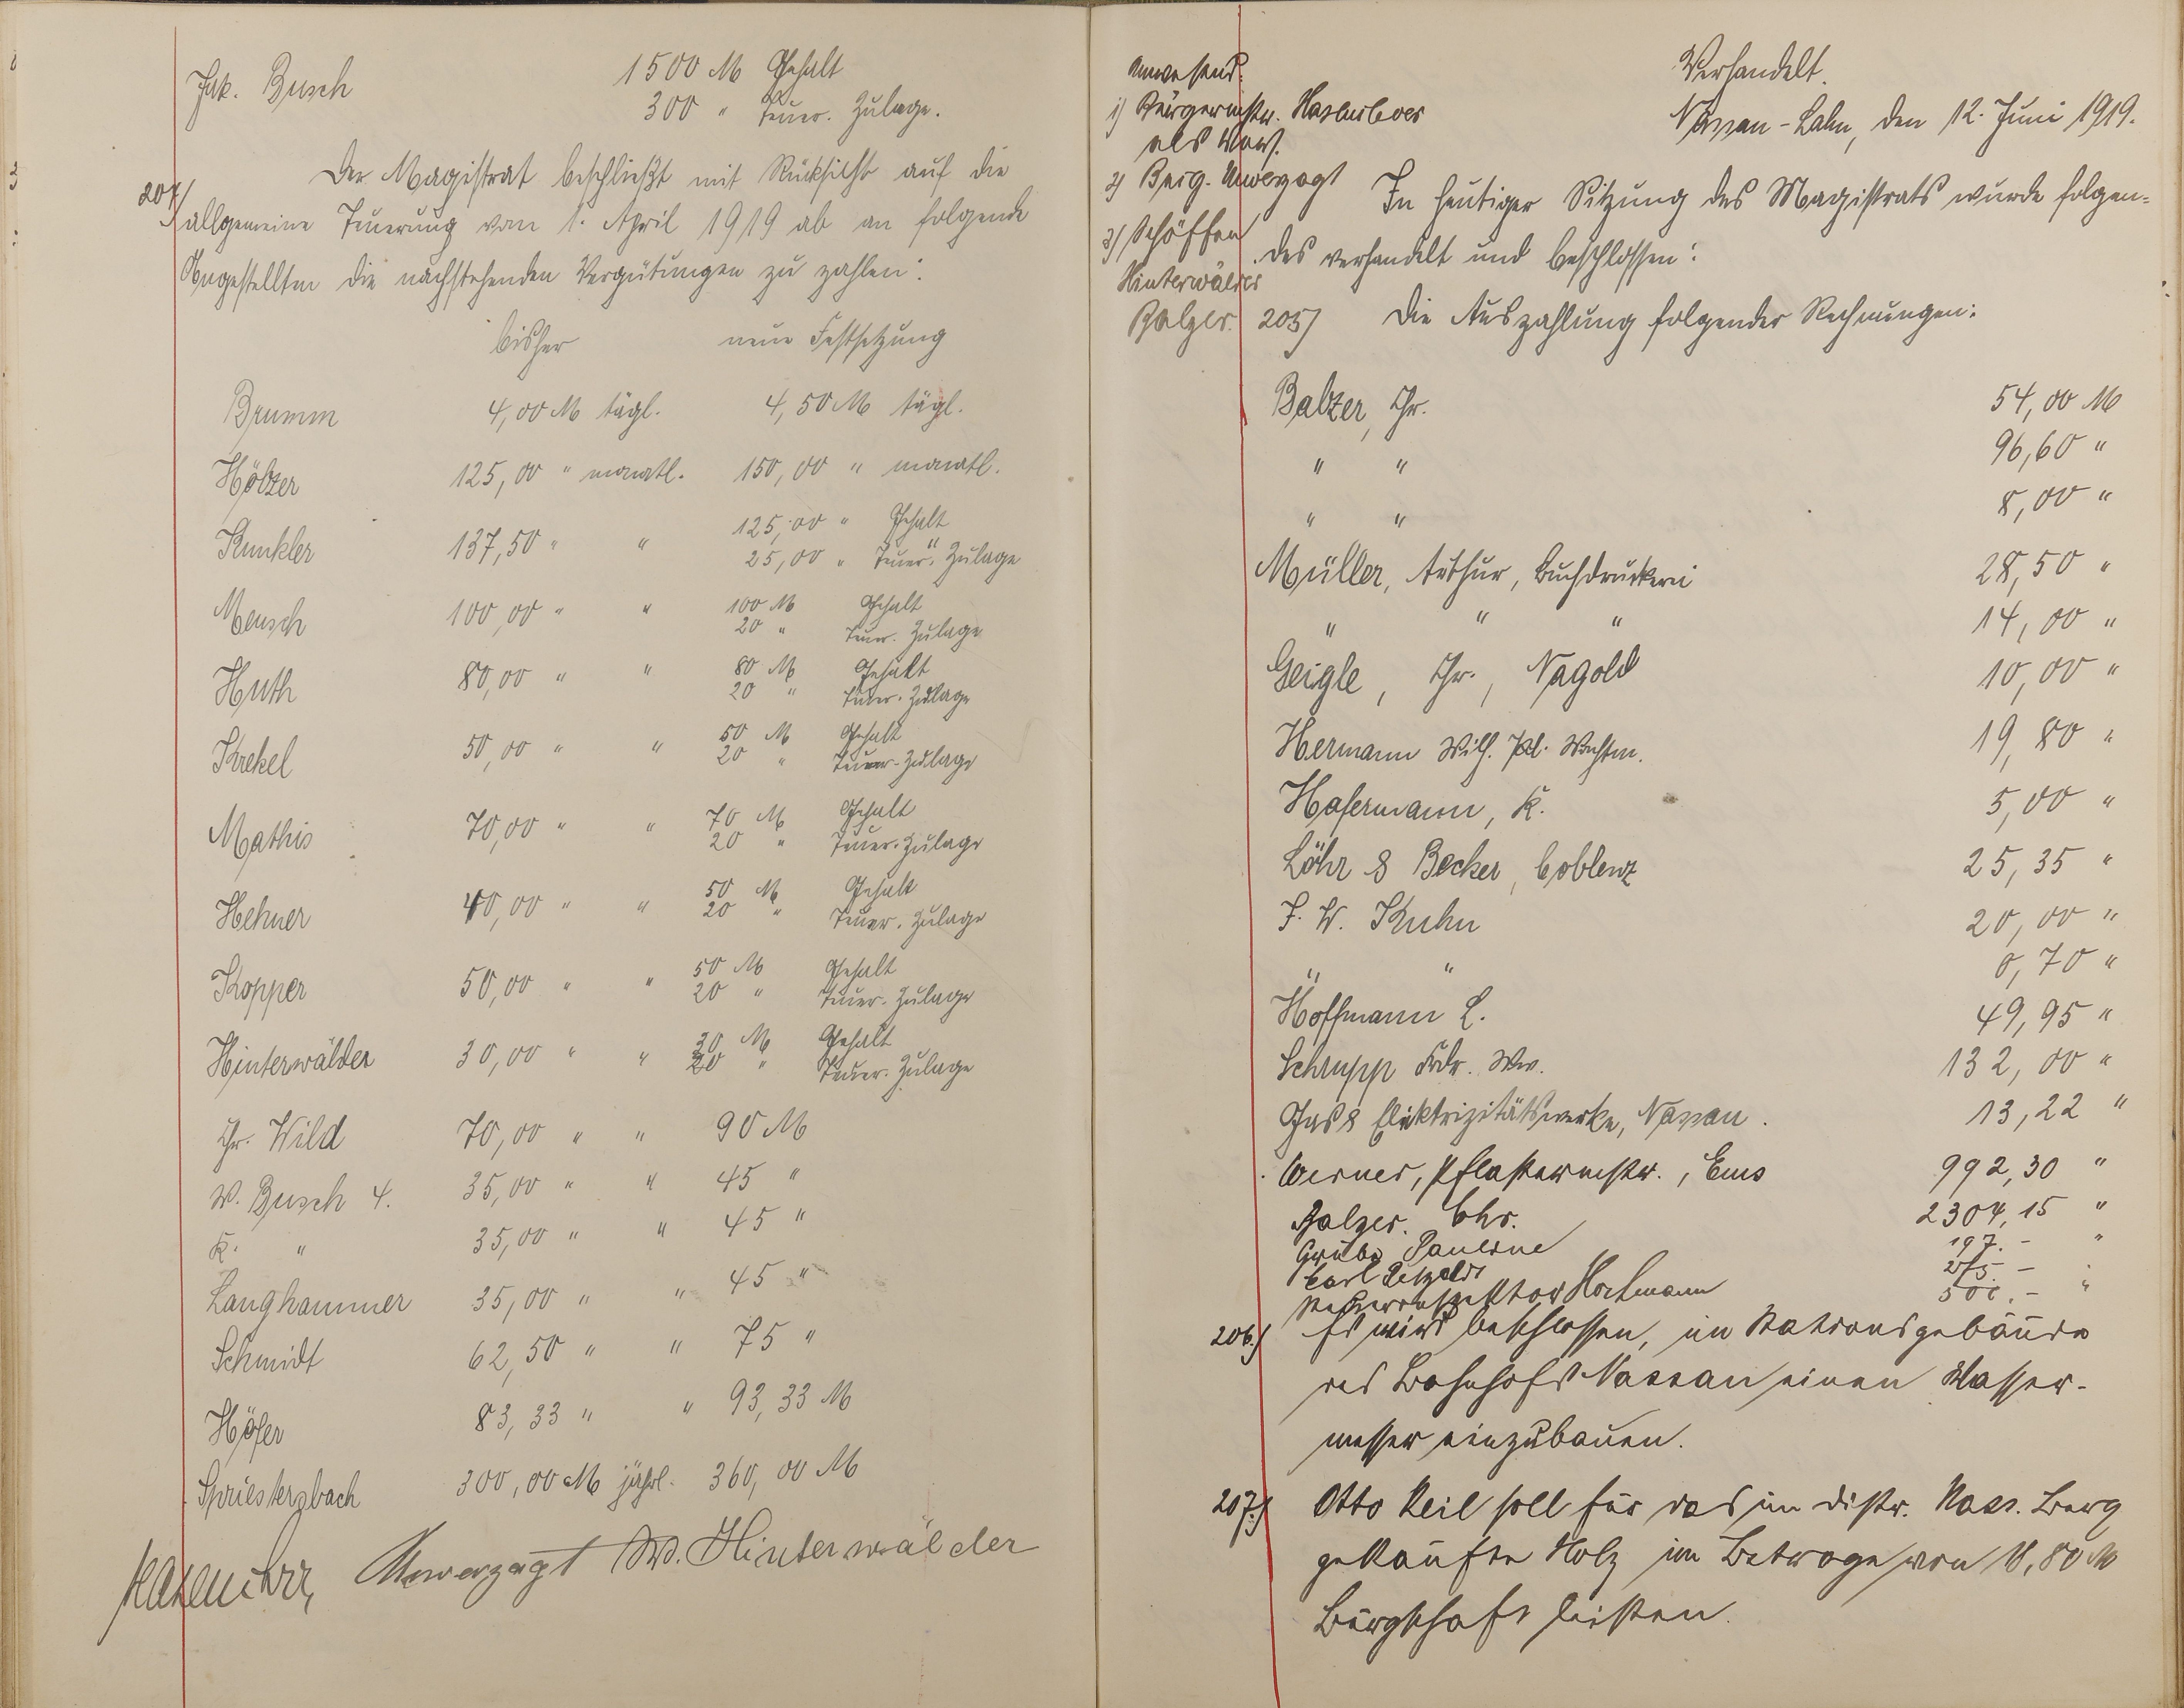 Jak. Busch 1500 M Gehalt
300 " Teuer. Zulage.
204/ Der Magistrat beschließt mit Rücksicht auf die
allgemeine Teuerung vom 1. April 1919 ab an folgende
Angestellten die nachstehenden Vergütungen zu zahlen:
bisher neue Festsetzung
Brumm 4,00 M tägl. 4,50 M tägl.
Hölzer 125,00 " monatl. 150,00 " monatl.
Kunkler 137,50 " " 125,00 " Gehalt "
25,00 " Teuer. Zulage
Mensch 100,00 " " 100 M Gehalt
20 " Teuer. Zulage
Huth 80,00 " " 80 M Gehalt
20 " Teuer. Zulage
Krekel 50,00 " " 50 M Gehalt
20 " Teuer-Zulage
Mathis 70,00 " " 70 M Gehalt
20 " Teuer. Zulage
Hehner 40,00 " " 50 M Gehalt
20 " Teuer. Zulage
Kopper 50,00 " " 50 M Gehalt
20 " Teuer. Zulage
Hinterwälder 30,00 " " 30 M Gehalt
20 " Teuer. Zulage
Chr. Wild 70,00 " " 90 M
W. Busch 4. 35,00 " " 45 "
K. " 35,00 " " 45 "
Langhammer 35,00 " " 45 "
Schmidt 62,50 " " 75 "
Höfer 83,33 " " 93,33 M
Spriestersbach 300,00 M jährl. 360,00 M
Unverzagt W. Hinterwälder
Anwesend:
1) Bürgermstr. Hasenclever
als Vors.
2) Beig. Unverzagt
3) Schöffen
Hinterwälder
Balzer.
Verhandelt.
Nassau-Lahn, den 12. Juni 1919.
In heutiger Sitzung des Magistrats wurde folgen-
des verhandelt und beschlossen:
205) Die Auszahlung folgender Rechnungen:
Balzer, Chr. 54,00 M
" " 96,60 "
" " 8,00 "
Müller, Arthur, Buchdruckerei 28,50 "
" " " 14,00 "
Geigle, Chr., Nagold 10,00 "
Hermann Wilh. Pol. Wachtm. 19,80 "
Hafermann, K. 5,00 "
Löhr & Becker, Coblenz 25,35 "
F. W. Kuhn 20,00 "
" " 0,70 "
Hoffmann L. 49,95 "
Schrupp Frdr. Ww. 132,00 "
Gas & Elektrizitätswerke, Nassau. 13,22 "
Werner, Pflastermstr., Ems 992,30 "
Balzer. Chr. 2304,15 "
Grube Pauline 197.- "
Carl 275.- "
Hofmann 500.- "
206.) Es wird beschlossen, im Stationsgebäude
des Bahnhofs Nassau einen Wasser-
messer einzubauen.
207.) Otto Keil soll für das im Distr. Nass. Berg
gekaufte Holz im Betrage von ,80 M
Bürgschaft leisten.